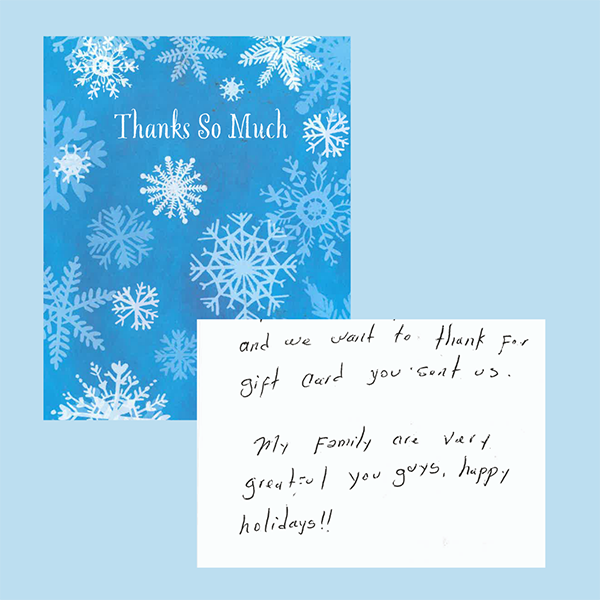 Thanks So Much
and we want to thank for
gift card you sent us.
My Family are very
greatful you guys, happy
holidays!!